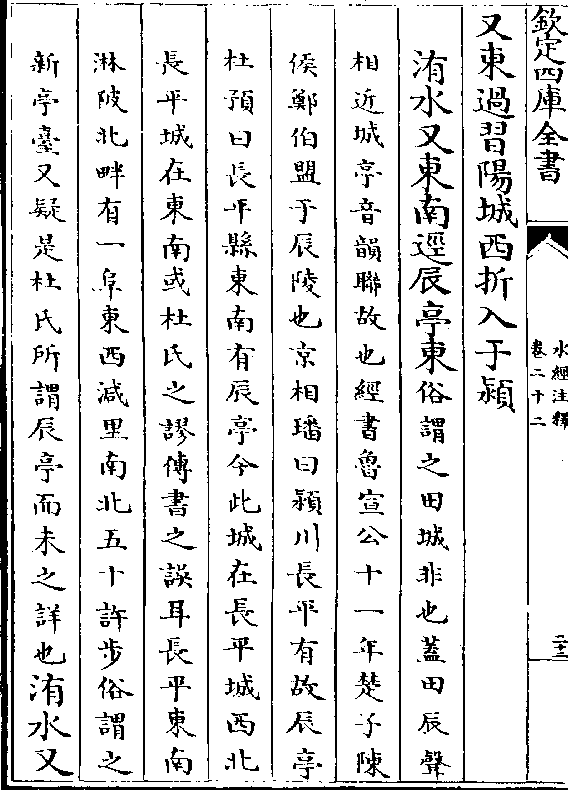 欽定四庫全書
水經注釋
卷二十二
二十三
又東過習陽城西折入于潁
洧水又東南逕辰亭東俗謂之田城非也蓋田辰聲
相近城亭音韻聯故也經書魯宣公十一年楚子陳
侯鄭伯盟于辰陵也京相璠曰潁川長平有故辰亭
杜預曰長平縣東南有辰亭今此城在長平城西北
長平城在東南或杜氏之謬傳書之誤耳長平東南
淋陂北畔有一阜東西減里南北五十許步俗謂之
新亭臺又疑是杜氏所謂辰亭而未之詳也洧水又